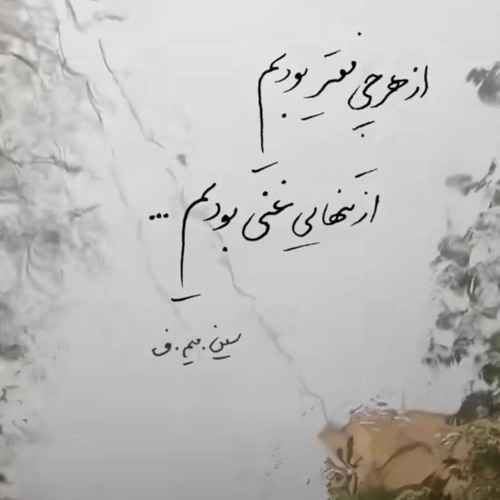 از هر چی فقیر بودیم
از تنهایی غنی بودیم ...
سین. میم. ف